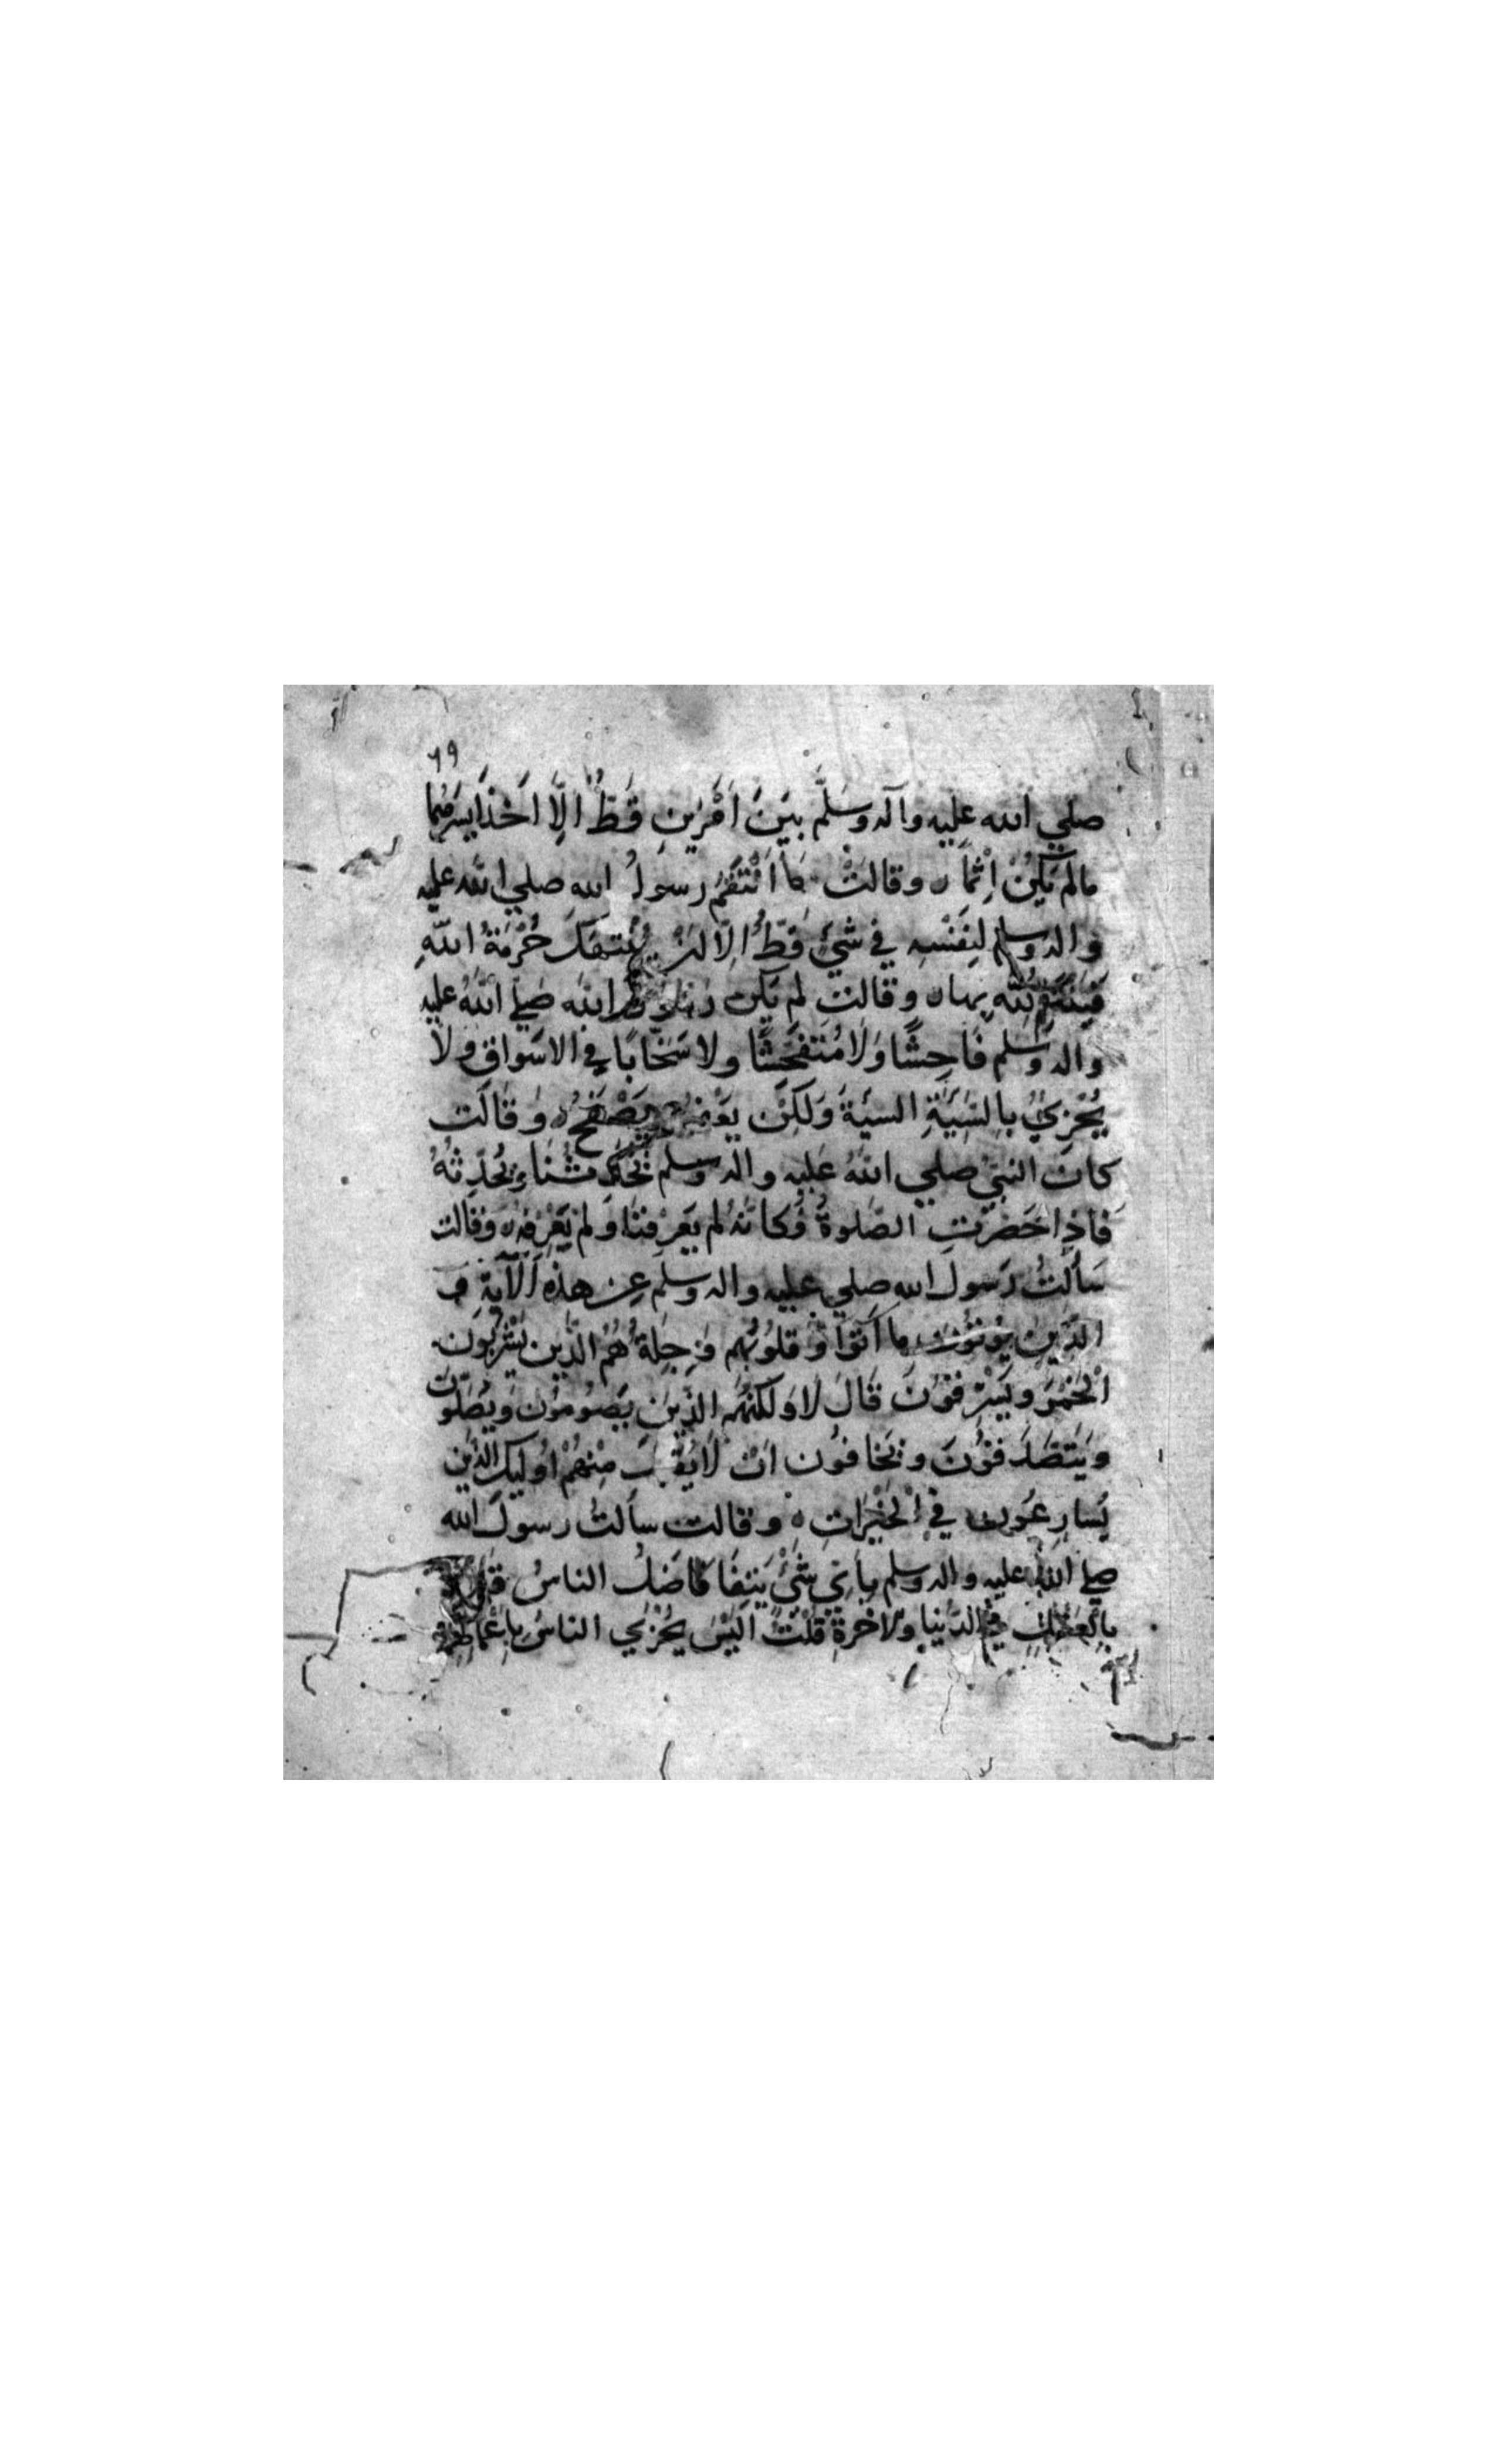 ٦٩
صلي الله عليه وآله وسلَّم بَيْنَ اَمْرَيْنِ قَطُّ اِلَّا اَخَذَ اَيْسَرَهُمَا
مالم يَكُنْ اِثْمًا ه وقالَتْ مَا انْتَقَمَ رسولُ الله صلي الله عليه
واله وسلم لِنَفْسِه في شَيْءٍ قَطُّ اِلَّا اَنْ يُنْتَهَكَ حُرْمَةُ اللهِ
فَيَنْتَقِمُ لِلّٰهِ بِهَا ه وقالت لم يَكُن رسول الله صَلّي اللهُ عليه
واله وَسلم فَاحِشًا وَلَا مُتَفَحِّشًا ولا سَخَّابًا فِي الاسَواقِ ولَا
يُجْزِيُ بِالسَيِّئَةِ السيئةَ وَلَكِنْ يَعْفُو وَيَصْفَحُ ه وَقَالَت
كانَ النبيّ صلي اللهُ عَليه واله وسلم يُحَدِّثُنَا ونُحَدِّثُهُ
فَاذا حَضَرَتِ الصَّلوةُ فَكَانَّهُ لم يَعْرِفنَا وَلم نَعْرِفْهُ ه وَقَالت
سَأَلتُ رَسولَ الله صلي عليه واله وسلم عن هذه الْآيةِ
الَّذِينَ يُوتُونَ ما آتَوْا وَّقلُوبُهم وَجِلَةٌ هُمُ الَّذِين يَشْرَبُون
الْخَمْرَ ويَسْرِقوُنَ قَالَ لَا وَلكنَّهُم الَّذِينَ يَصُومُون وَيُصَلّونَ
وَيَتَصَدَّقوُنَ ويَخافوُن اَنْ لَا يُقْبَلَ مِنْهُمْ اُولَيِكَ الَّذِينَ
يُسَارِعُون فِي الْخَيْرَاتِ ه وقالت سأَلتُ رسولَ الله
صلي اللهُ عليه واله وسلم بِأَيِّ شَيْءٍ يَتَفَاضَلُ الناسُ قَالَ
بِالْعَقْلِ فِي الدُّنيا وَلْاخرةِ قُلْتُ اَلَيْسَ يُجْزَي الناسُ بِاَعْمَالِهِمْ